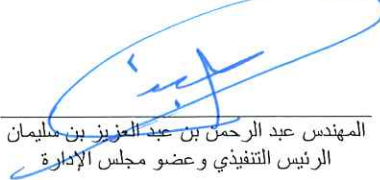 المهندس عبد الرحمن بن عبد العزيز بن سليمان
الرئيس التنفيذي وعضو مجلس الإدارة